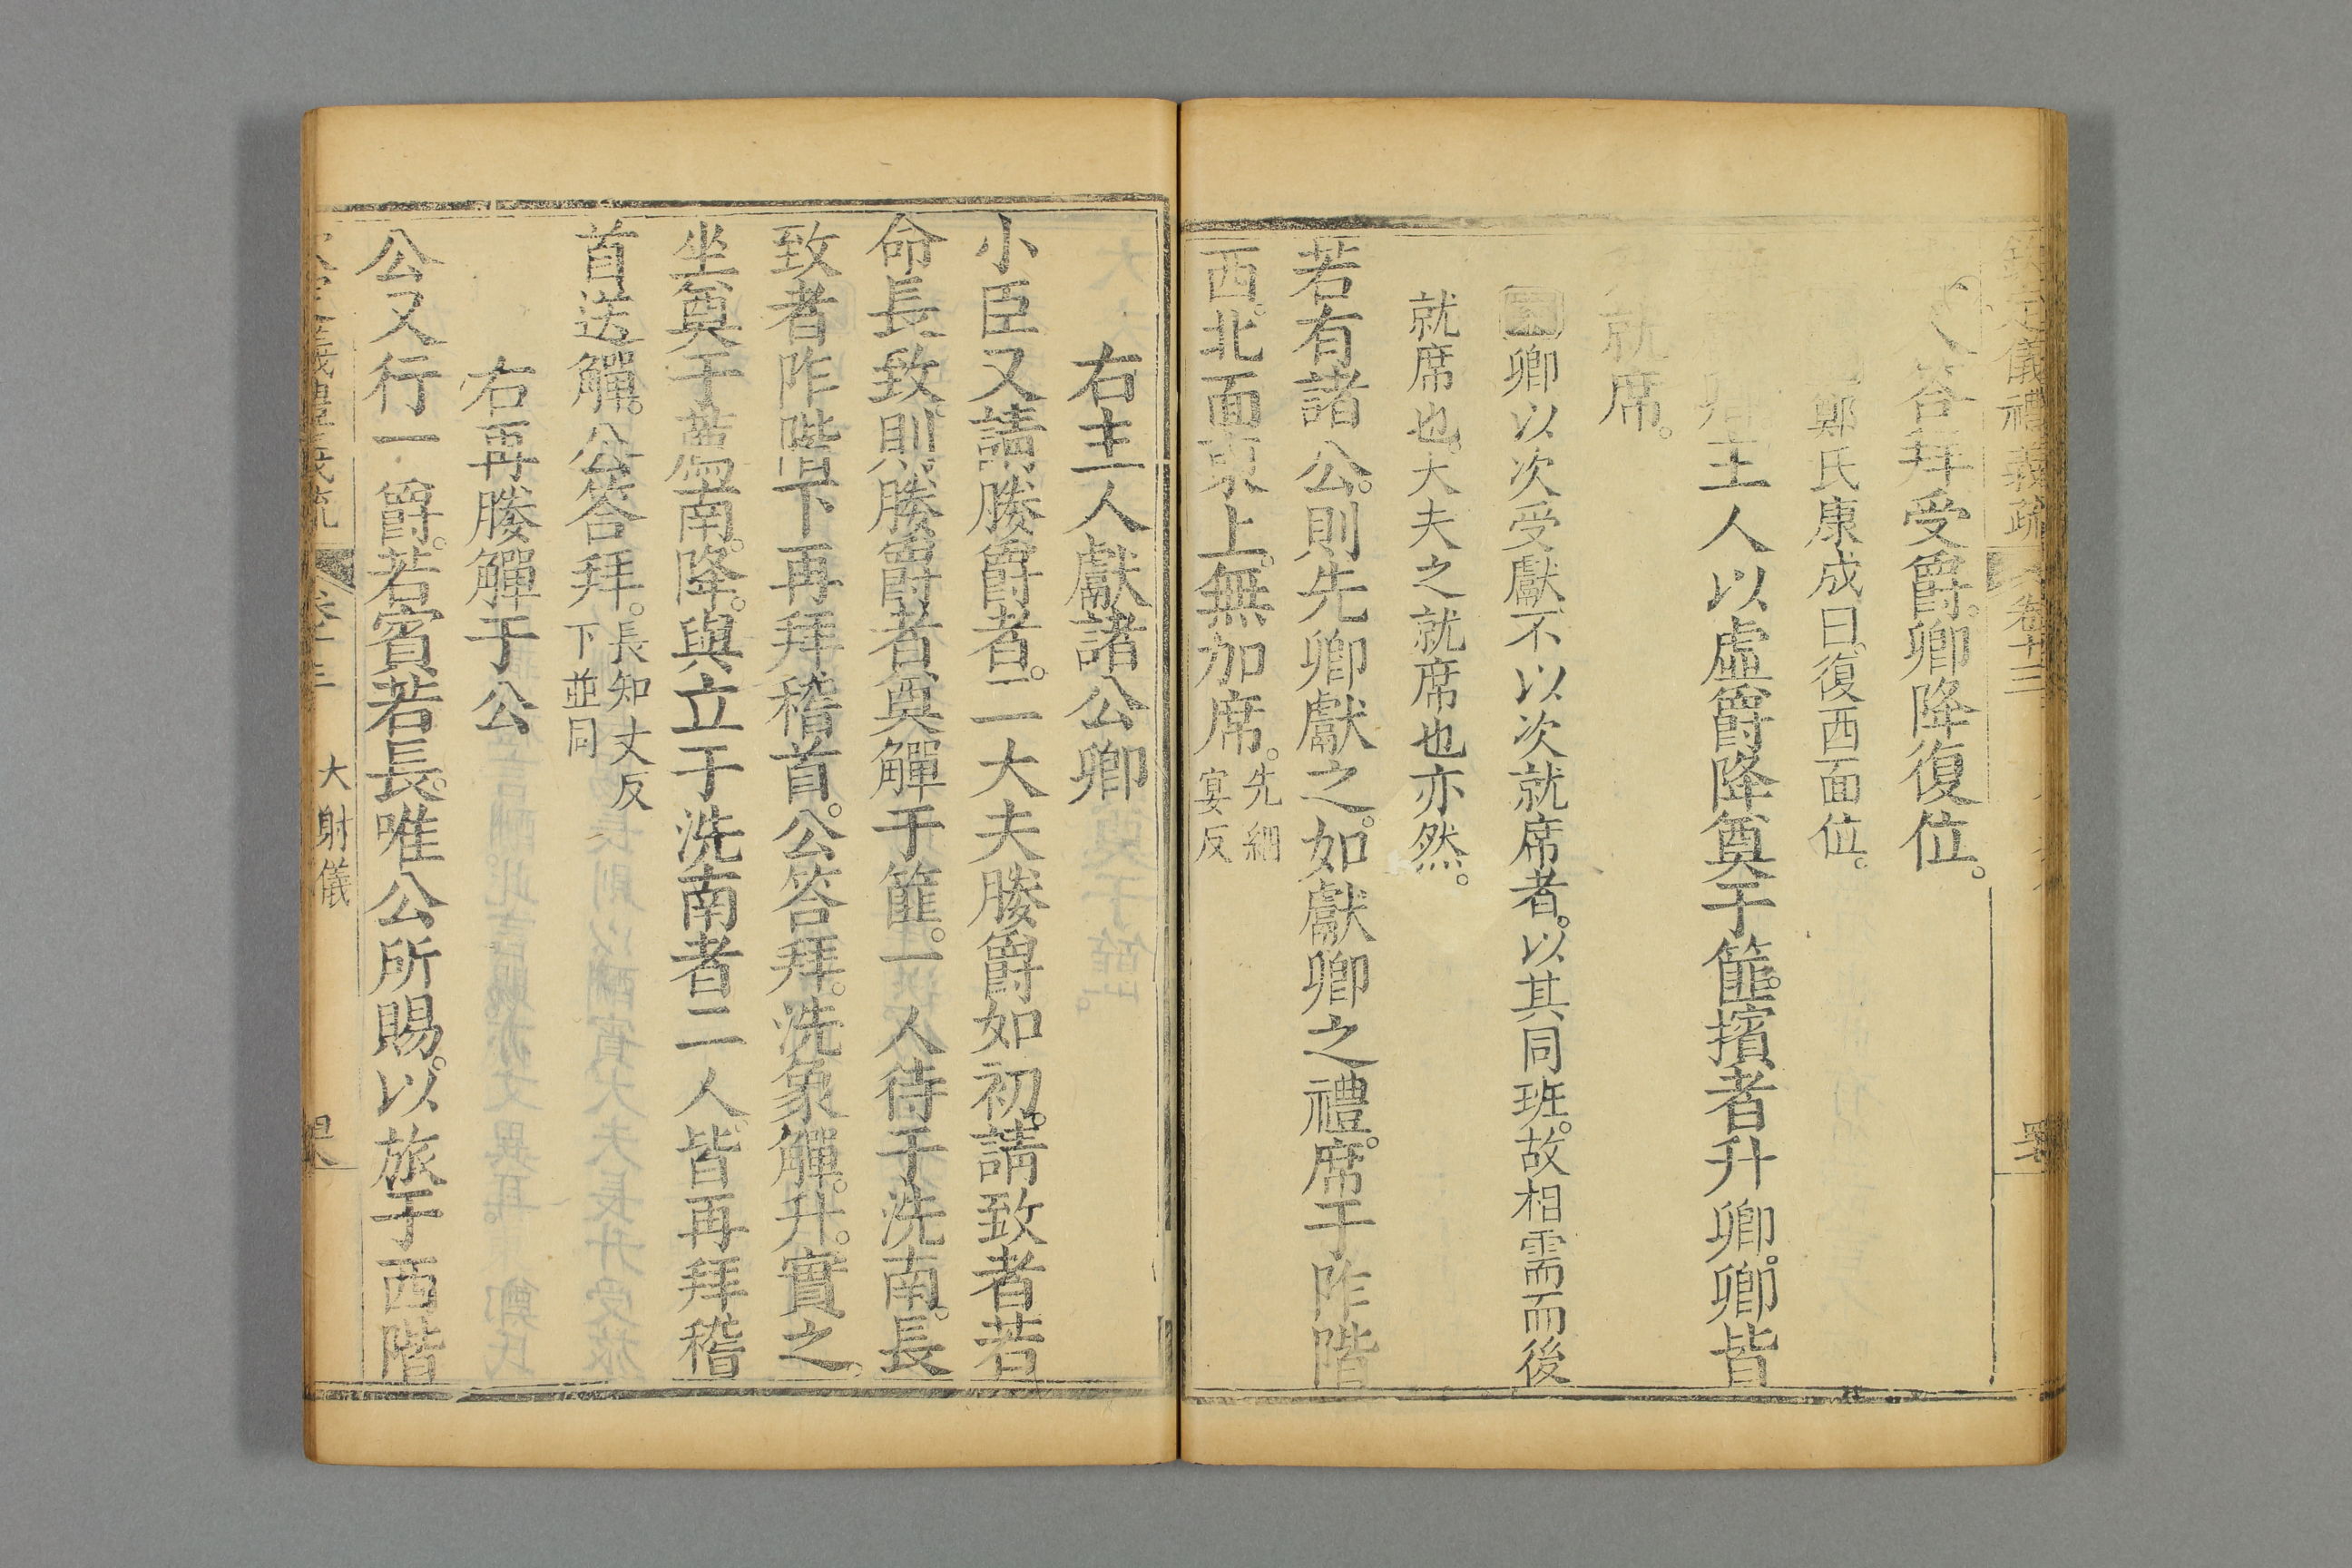 儀禮義疏 卷十三
答拜受爵。卿降復位。
鄭氏康成曰。復西面位。
主人以虛爵降奠于篚。擯者升卿。卿皆
就席。
案卿以次受獻。不以次就席者。以其同班。故相需而後
就席也。大夫之就席也亦然。
若有諸公。則先卿獻之。如獻卿之禮。席于阼階
西。北面東上。無加席。先綢
宴反
右主人獻諸公卿
小臣又請媵爵者。二大夫媵爵如初。請致者。若
命長致。則媵爵者奠觶于篚。一人待于洗南。長
致者阼階下再拜稽首。公答拜。洗象觶。升。實之。
坐奠于薦南。降。與立于洗南者二人皆再拜稽
首送觶。公答拜。長知丈反
下並同
右再媵觶于公
公又行一爵。若賓若長。唯公所賜。以旅于西階
大射儀